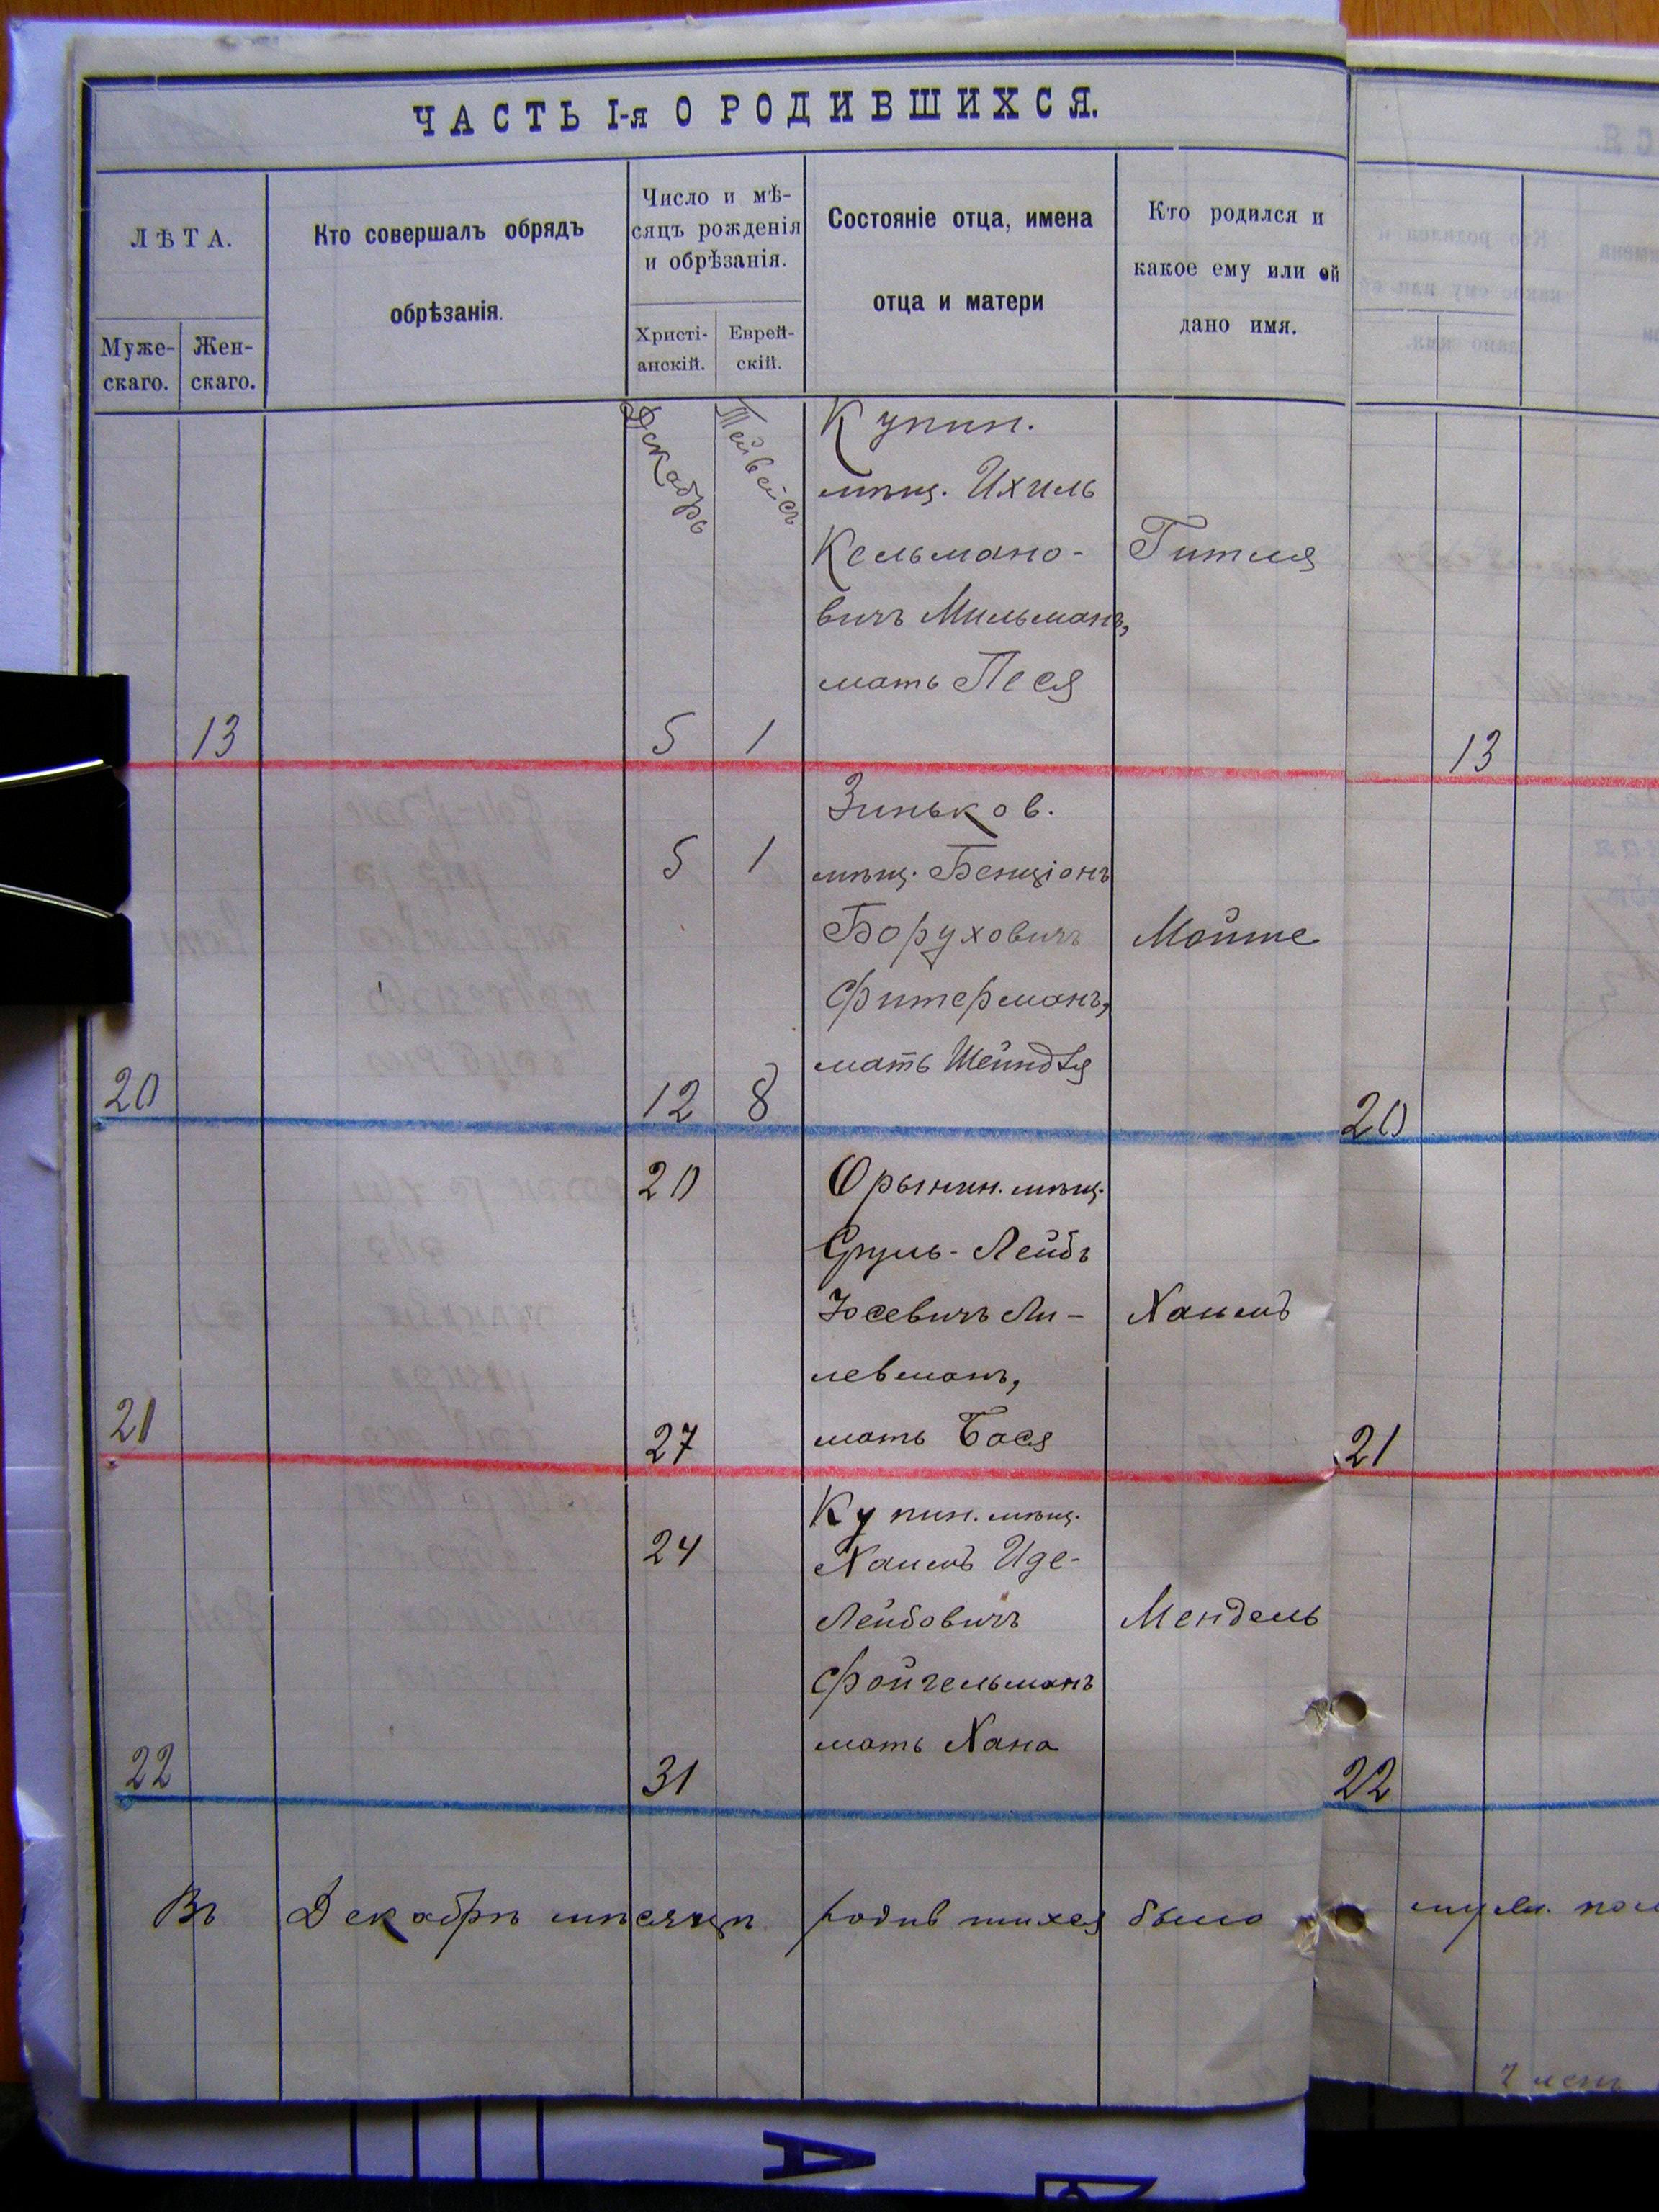 ЧАСТЬ I-я О РОДИВШИХСЯ.
ЛѢТА.
Муже-
скаго.
Жен-
скаго.
Кто совершалъ обрядъ
обрѣзанія.
Число и мѣ-
сяцъ рожденія
и обрѣзанія.
Христі-
анскій.
Еврей-
скій.
Состояніе отца, имена
отца и матери
Кто родился и
какое ему или ей
дано имя.
Декабрь
Тейвейсъ
Купин.
мѣщ. Ихиль
Кельмано-
вичъ Мильманъ,
мать Песя
Гитля
13
5
1
13
Зиньков.
5
1
мѣщ. Бенціонъ
Боруховичъ
Мойше
Фитерманъ,
мать Шейндля
20
12
8
20
20
Орынин. мѣщ.
Сруль-Лейбъ
Іосевичъ Ли-
Хаимъ
левманъ,
21
27
мать Бася
21
Купин. мѣщ.
24
Хаимъ Иде-
Лейбовичъ
Мендель
Фойгельманъ
мать Хана
22
31
22
Въ Декабрѣ мѣсяцѣ родившихся было